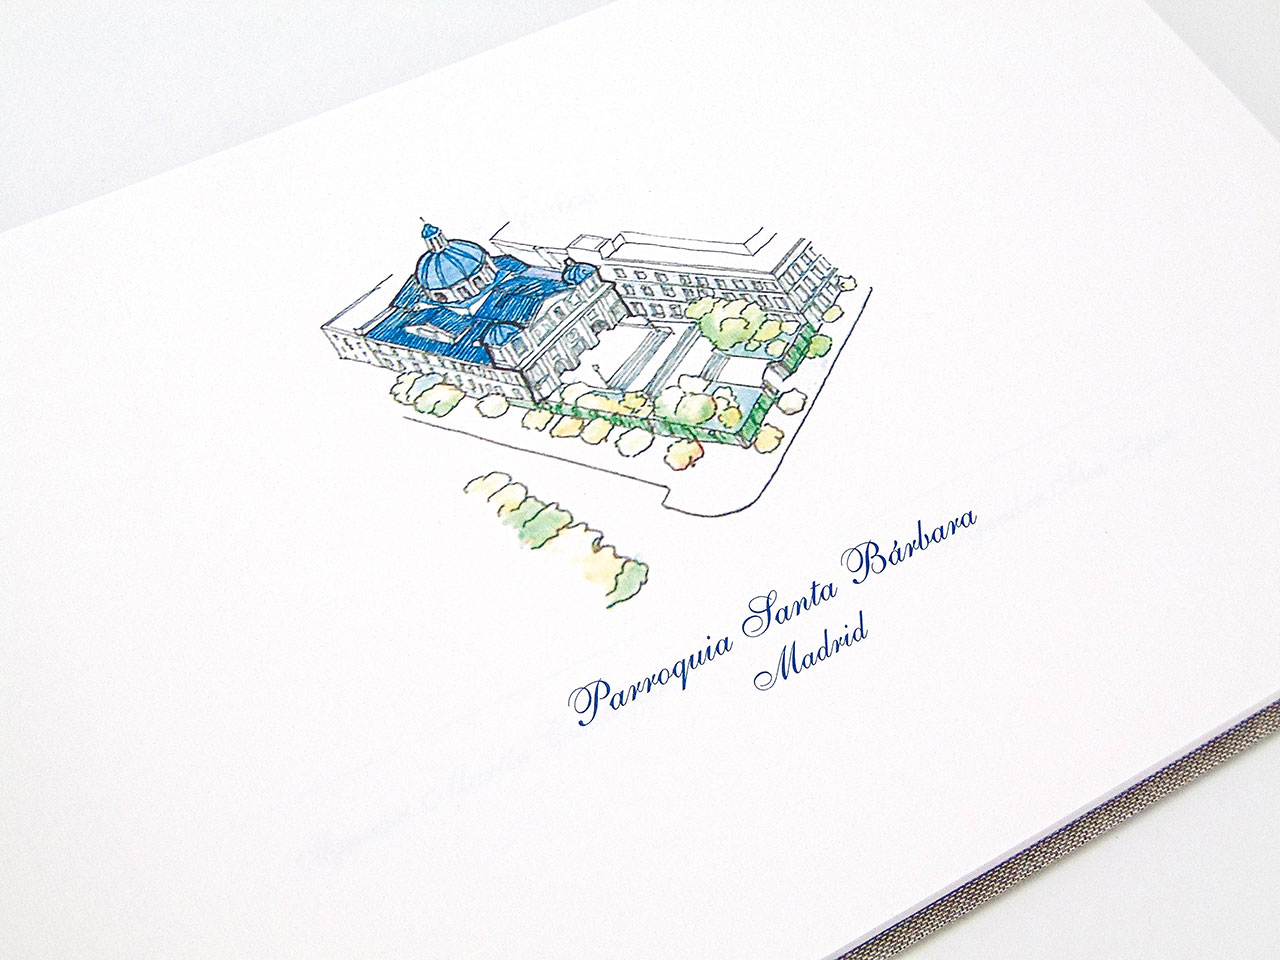 Parroquia Santa Bárbara
Madrid